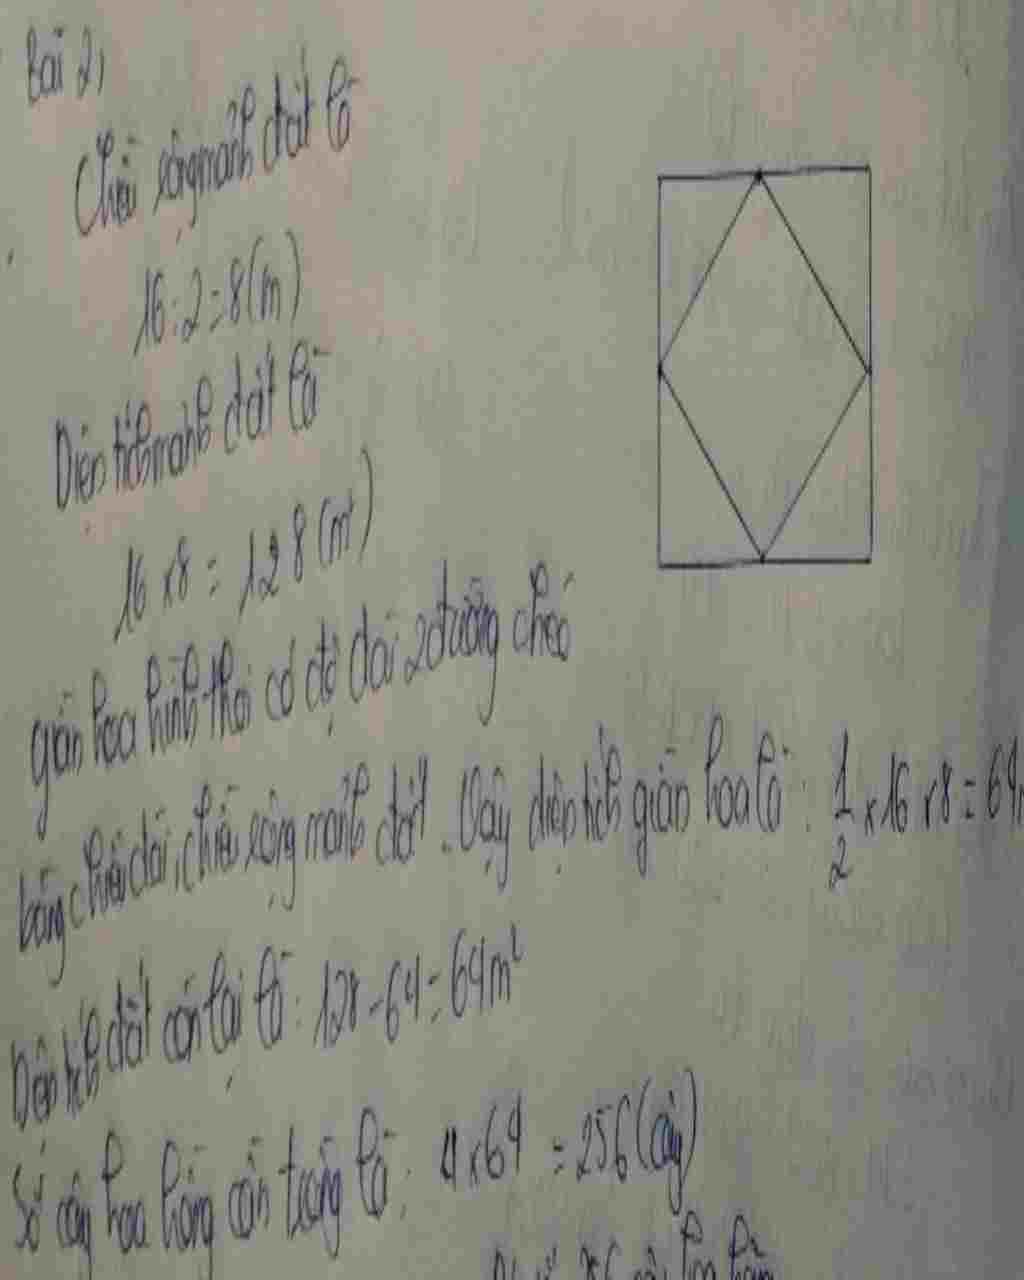 Bài 2,
Chiều rộng mảnh đất là
16 : 2 = 8 (m)
Diện tích mảnh đất là
16 x 8 = 128 (m²)
giàn hoa hình thoi có độ dài 2 đường chéo
bằng chiều dài, chiều rộng mảnh đất. Vậy diện tích giàn hoa là: 1/2 x 16 x 8 = 64
Diện tích đất còn lại là: 128 - 64 = 64m²
Số cây hoa hồng cần trồng là: 4 x 64 = 256 (cây)